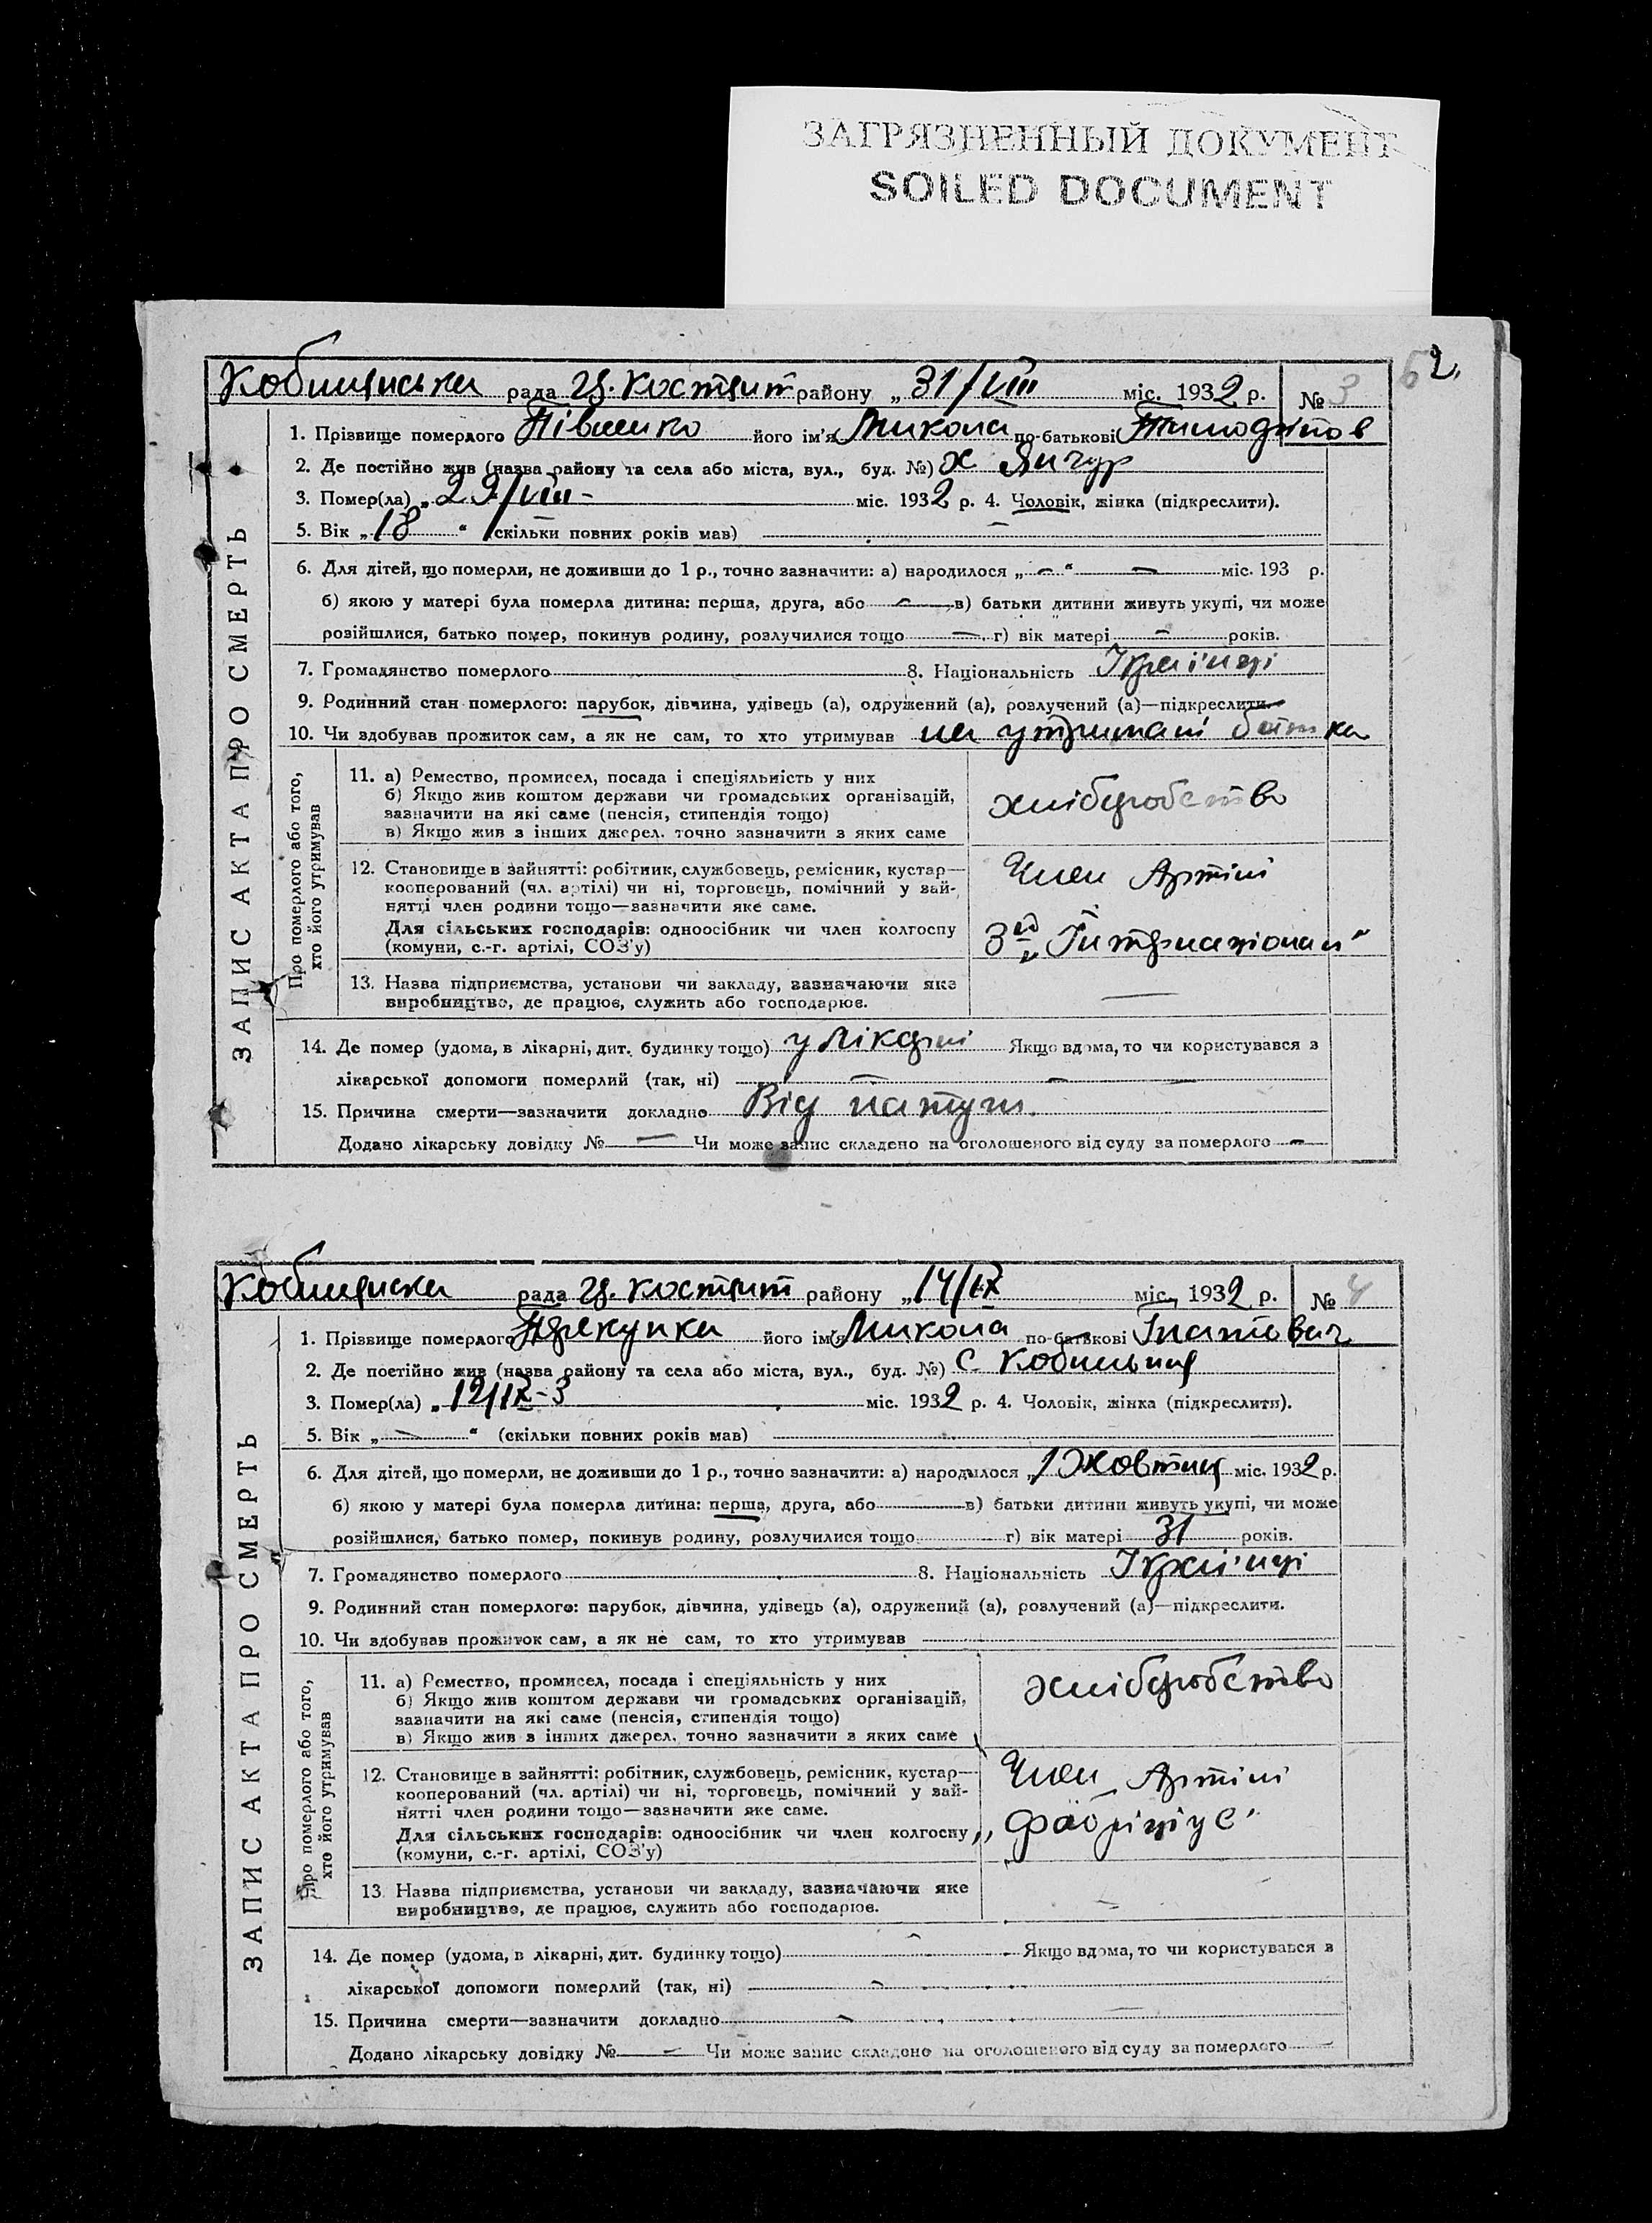 ЗАГРЯЗНЕННЫЙ ДОКУМЕНТ
SOILED DOCUMENT
62.
рада району „31/VIII міс. 1932 р. № 3
ЗАПИС АКТА ПРО СМЕРТЬ
1. Прізвище померлого його ім'я Микола по-батькові
2. Де постійно жив (назва району та села або міста, вул., буд. №) х Янчур
3. Помер(ла) „29/VIII- міс. 1932 р. 4. Чоловік, жінка (підкреслити).
5. Вік „18“ (скільки повних років мав) —
6. Для дітей, що померли, не доживши до 1 р., точно зазначити: а) народилося „—“ — міс. 193 р.
б) якою у матері була померла дитина: перша, друга, або — в) батьки дитини живуть укупі, чи може
розійшлися, батько помер, покинув родину, розлучилися тощо — г) вік матері — років.
7. Громадянство померлого 8. Національність Україңці
9. Родинний стан померлого: парубок, дівчина, удівець (а), одружений (а), розлучений (а)—підкреслити.
10. Чи здобував прожиток сам, а як не сам, то хто утримував на утримані батька
Про померлого або того,
хто його утримував
11. а) Ремество, промисел, посада і спеціяльність у них
б) Якщо жив коштом держави чи громадських організацій,
зазначити на які саме (пенсія, стипендія тощо)
в) Якщо жив з інших джерел, точно зазначити з яких саме
хліборобство
12. Становище в зайнятті: робітник, службовець, ремісник, кустар—
кооперований (чл. артілі) чи ні, торговець, помічний у зай-
нятті член родини тощо—зазначити яке саме.
Для сільських господарів: одноосібник чи член колгоспу
(комуни, с.-г. артілі, СОЗ'у)
Член Артілі
3й „Інтернаціонал“
13. Назва підприємства, установи чи закладу, зазначаючи яке
виробництво, де працює, служить або господарює.
—
14. Де помер (удома, в лікарні, дит. будинку тощо) у лікарні Якщо вдома, то чи користувався з
лікарської допомоги померлий (так, ні) — —
15. Причина смерти—зазначити докладно Від
Додано лікарську довідку № — Чи може запис складено на оголошеного від суду за померлого —
рада району „14/IX міс. 1932 р. № 4
ЗАПИС АКТА ПРО СМЕРТЬ
1. Прізвище померлого його ім'я Микола по-батькові Гнатович
2. Де постійно жив (назва району та села або міста, вул., буд. №) с.
3. Помер(ла) „12/IX-3 міс. 1932 р. 4. Чоловік, жінка (підкреслити).
5. Вік „—“ (скільки повних років мав)
6. Для дітей, що померли, не доживши до 1 р., точно зазначити: а) народилося „1 Жовтня міс. 1932 р.
б) якою у матері була померла дитина: перша, друга, або в) батьки дитини живуть укупі, чи може
розійшлися, батько помер, покинув родину, розлучилися тощо г) вік матері 31 років.
7. Громадянство померлого 8. Національність Українці
9. Родинний стан померлого: парубок, дівчина, удівець (а), одружений (а), розлучений (а)—підкреслити.
10. Чи здобував прожиток сам, а як не сам, то хто утримував
Про померлого або того,
хто його утримував
11. а) Ремество, промисел, посада і спеціяльність у них
б) Якщо жив коштом держави чи громадських організацій,
зазначити на які саме (пенсія, стипендія тощо)
в) Якщо жив з інших джерел, точно зазначити з яких саме
хліборобство
12. Становище в зайнятті: робітник, службовець, ремісник, кустар—
кооперований (чл. артілі) чи ні, торговець, помічний у зай-
нятті член родини тощо—зазначити яке саме.
Для сільських господарів: одноосібник чи член колгоспу
(комуни, с.-г. артілі, СОЗ'у)
Член Артілі
13. Назва підприємства, установи чи закладу, зазначаючи яке
виробництво, де працює, служить або господарює.
14. Де помер (удома, в лікарні, дит. будинку тощо) Якщо вдома, то чи користувався з
лікарської допомоги померлий (так, ні)
15. Причина смерти—зазначити докладно
Додано лікарську довідку № — Чи може запис складено на оголошеного від суду за померлого —